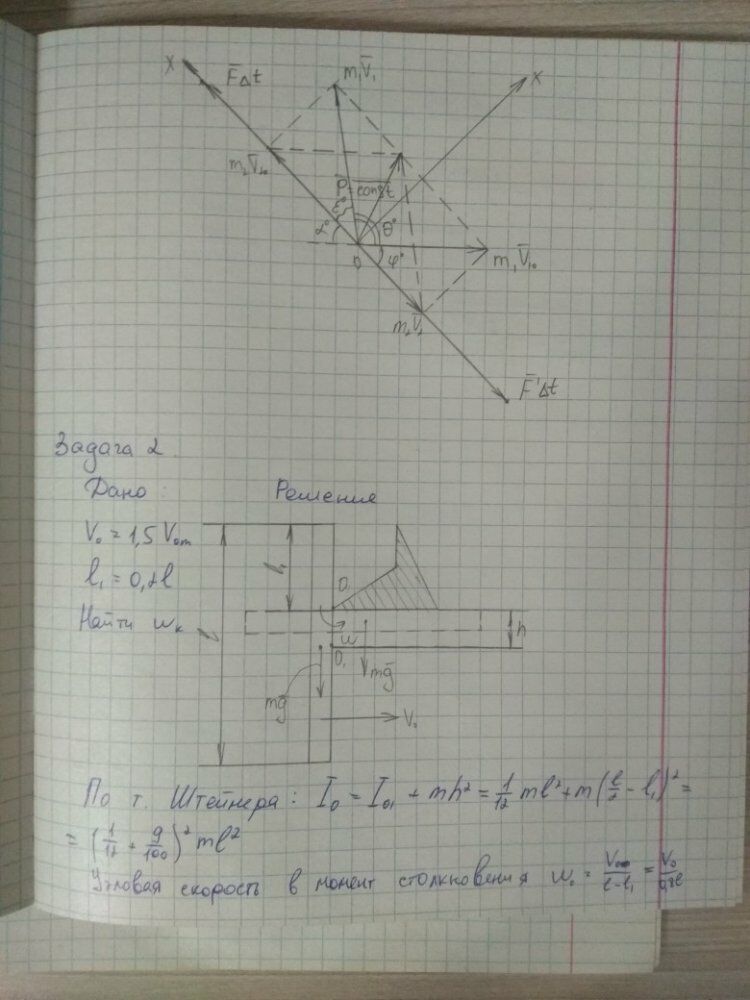 X
F̅Δt
m₁V̅₁
X
m₂V̅₂₀
P̅ = const
ξ°
α°
θ°
φ°
0
m₁V̅₁₀
m₂V̅₂
F̅'Δt
Задача 2.
Дано:
Решение
V₀ = 1,5 V₀m
l₁ = 0,2l
Найти ωк
l₁
l
O
ω
h
O₁
mg̅
mg̅
V₀
По т. Штейнера: I₀ = I₀₁ + mh² = 1/12 ml² + m(l/2 - l₁)² =
= (1/12 + 9/100)² ml²
Угловая скорость в момент столкновения ω₀ = /l-l₁ = V₀/0,8l